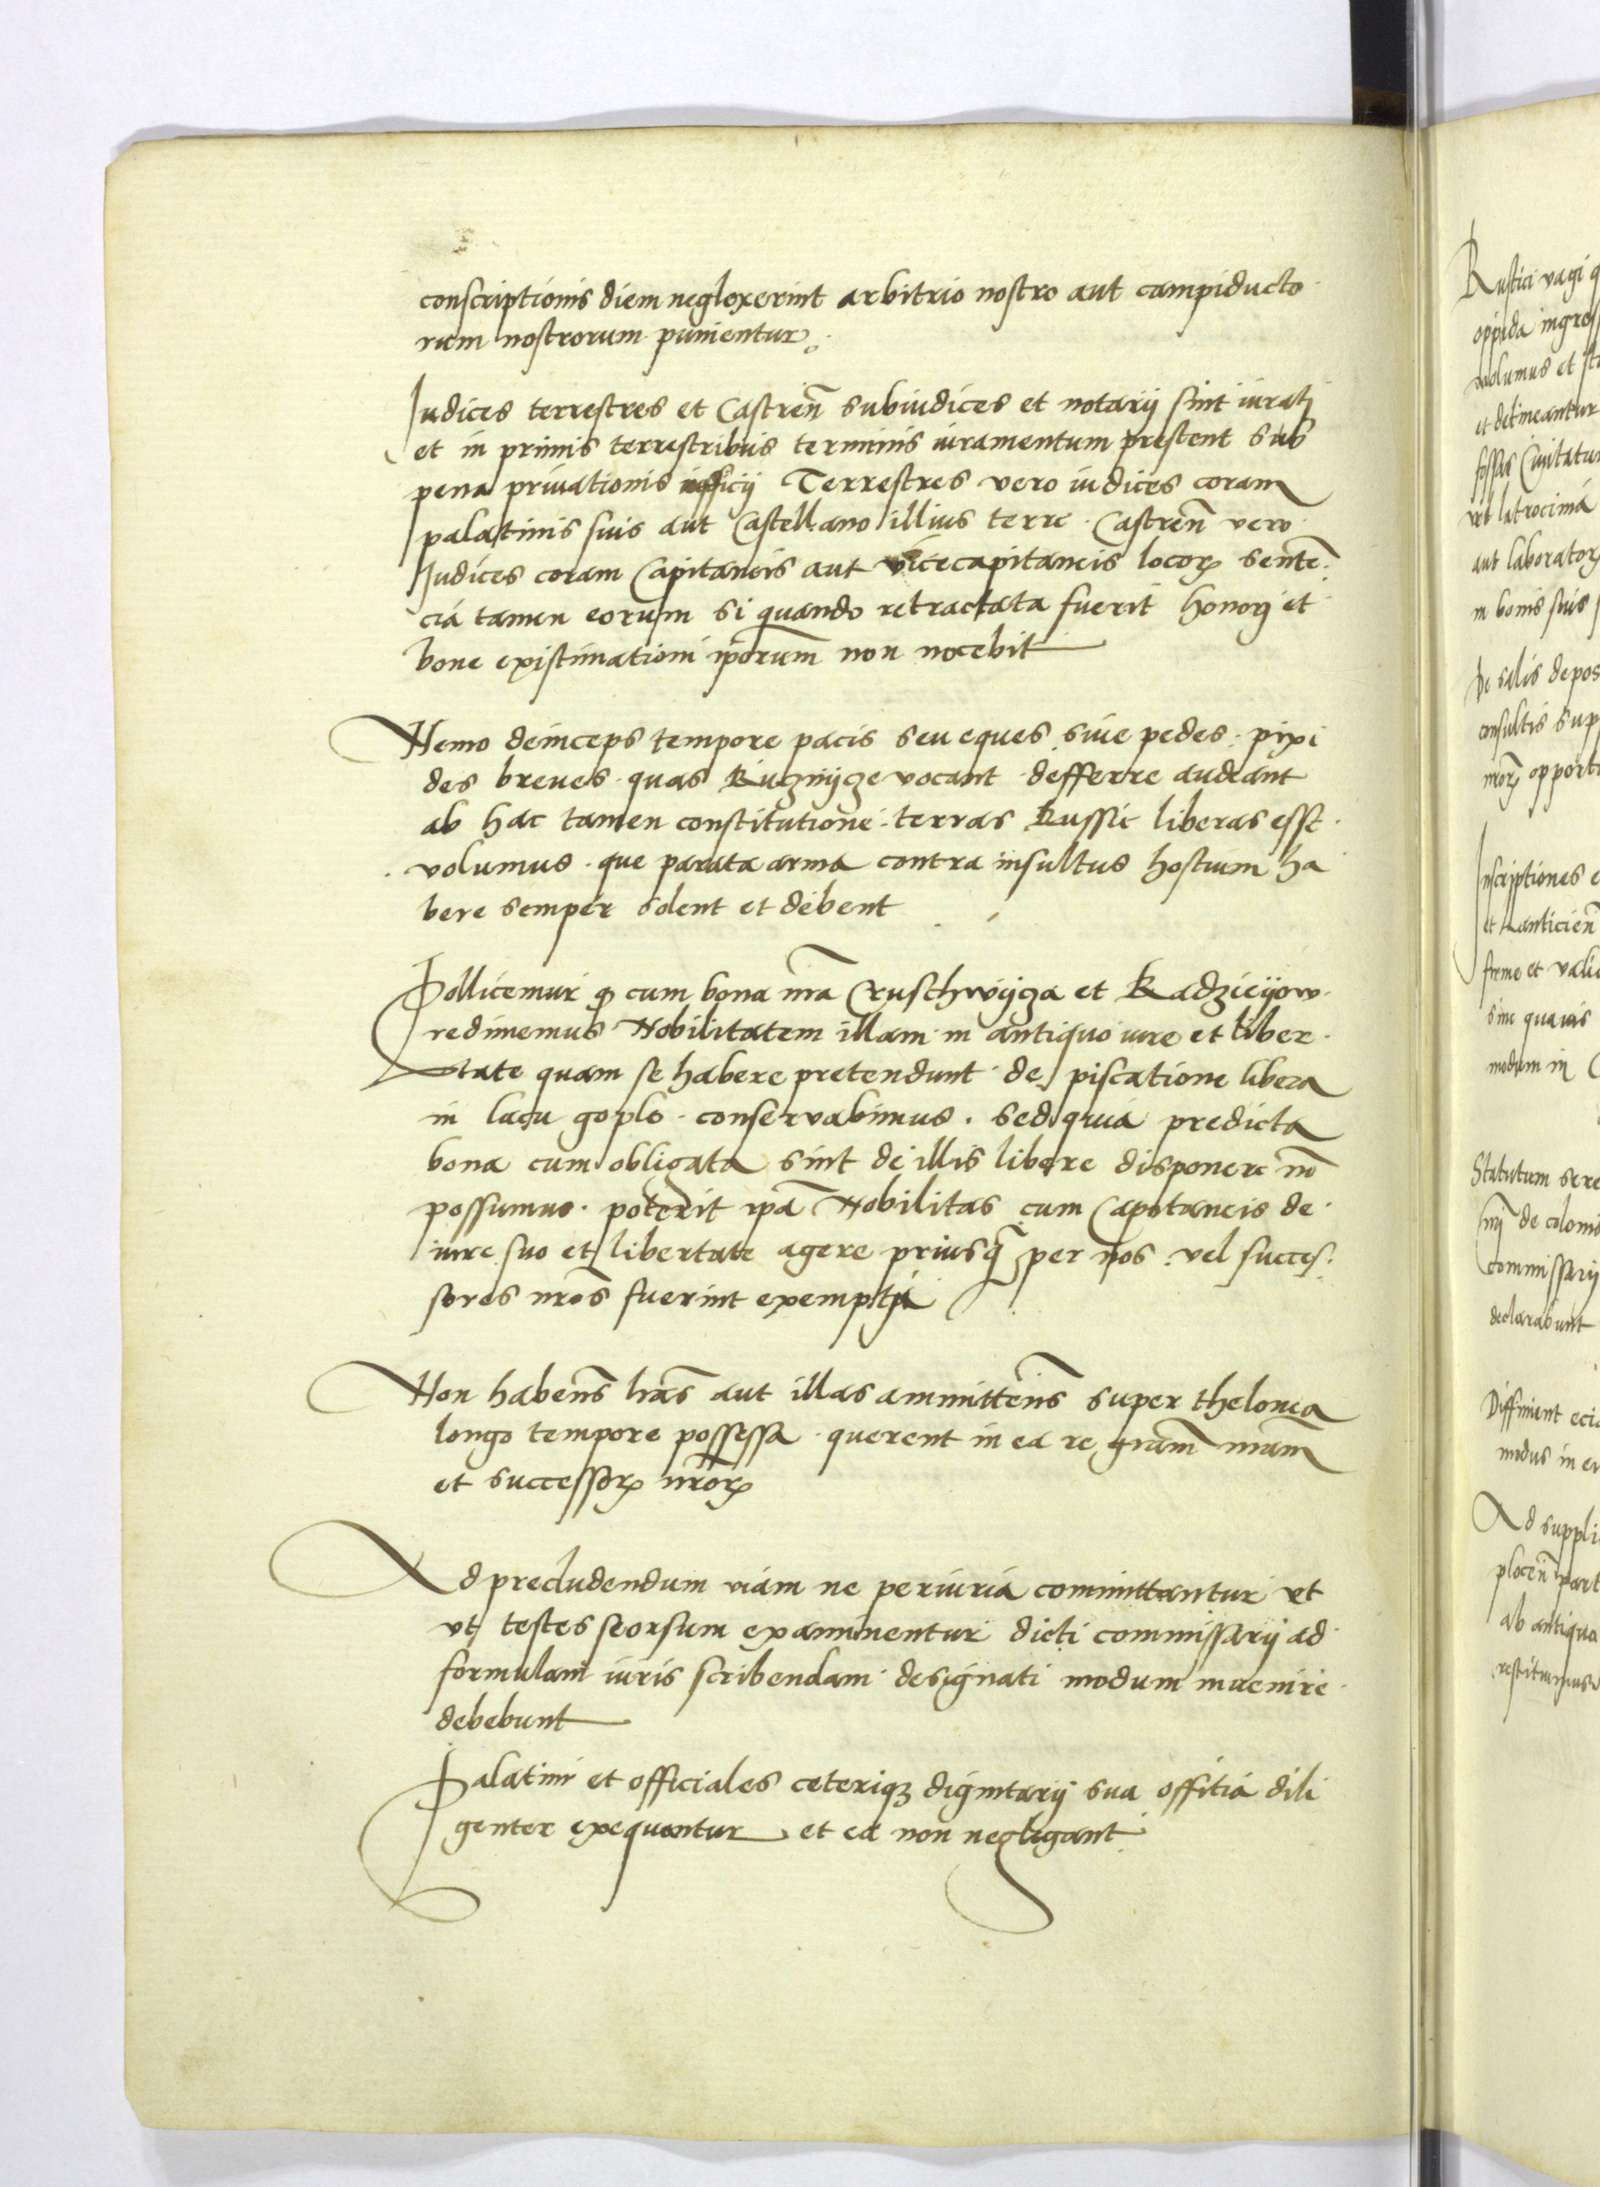 conscriptionis diem neglexerint arbitrio nostro aut campiducto
rum nostrorum punientur.
Iudices terrestres et Castreñ subiudices et notarij sint iurati
et in primis terrestribus terminis iuramentum prestent sub
pena privationis officij Terrestres vero iudices coram
palatinis suis aut Castellano illius terre. Castreñ vero
Iudices coram Capitaneis aut vicecapitaneis locoꝝ senteñ
cia tamen eorum si quando retractata fuerit honori et
bone existimationi ip̃orum non nocebit
Nemo deinceps tempore pacis seu eques sive pedes. pixi
des breves. quas Ruzniicze vocant. defferre audeant
ab hac tamen constitutione. terras Russie liberas esse.
volumus. que parata arma contra insultus hostium ha
bere semper solent et debent
Pollicemur ꝙ cum bona nr̃a Cruschwijcza et Radzieijow
redimemus Nobilitatem illam in antiquo iure et liber
tate quam se habere pretendunt. de piscatione libera
in lacu goplo. conservabimus. sed quia predicta
bona cum obligata sint de illis libere disponere nõ
possumus. poterit ip̃a Nobilitas cum Capitaneis de
iure suo et libertate agere priusq̃ per nos vel succes
sores nr̃os fuerint exempta
Non habeñs lr̃as aut illas ammitteñs super thelonea
longo tempore possessa. querent in ea re gr̃am nr̃am
et successoꝝ nr̃oꝝ
Ad precludendum viam ne periuria committantur et
ut testes seorsum examinentur dicti commissarij ad
formulam iuris scribendam designati modum invenire
debebunt
Palatini et officiales ceteriqꝫ dignitarij sua offitia dili
genter exequantur et ea non negligant
Rustici vagi
oppida
volumus et
et detineantur
fossas Civitatum
vel latrocinia
aut laboratoꝝ
in bonis suis
De salis
consultis
nr̃oꝝ
Inscriptiones
et Lanticieñ
firme et
sine quavis
modum in
Statutum
de
commissarij
declarabunt
Diffinient
modus in
Ad
ploceñ
ab antiquo